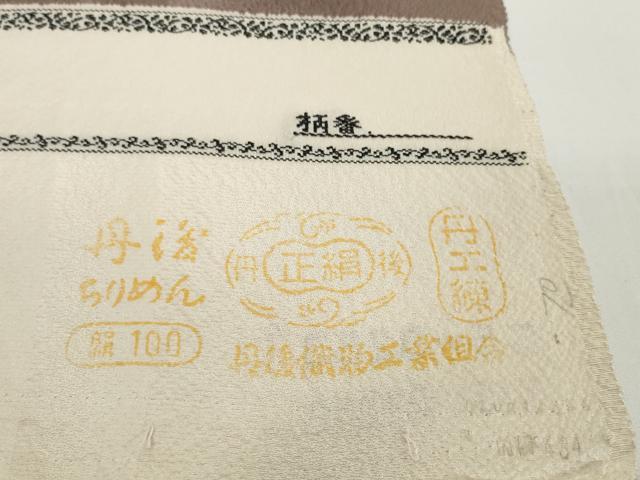 柄番
丹後
ちりめん
絹100
丹 正絹 後
丹後織物工業組合
丹工練